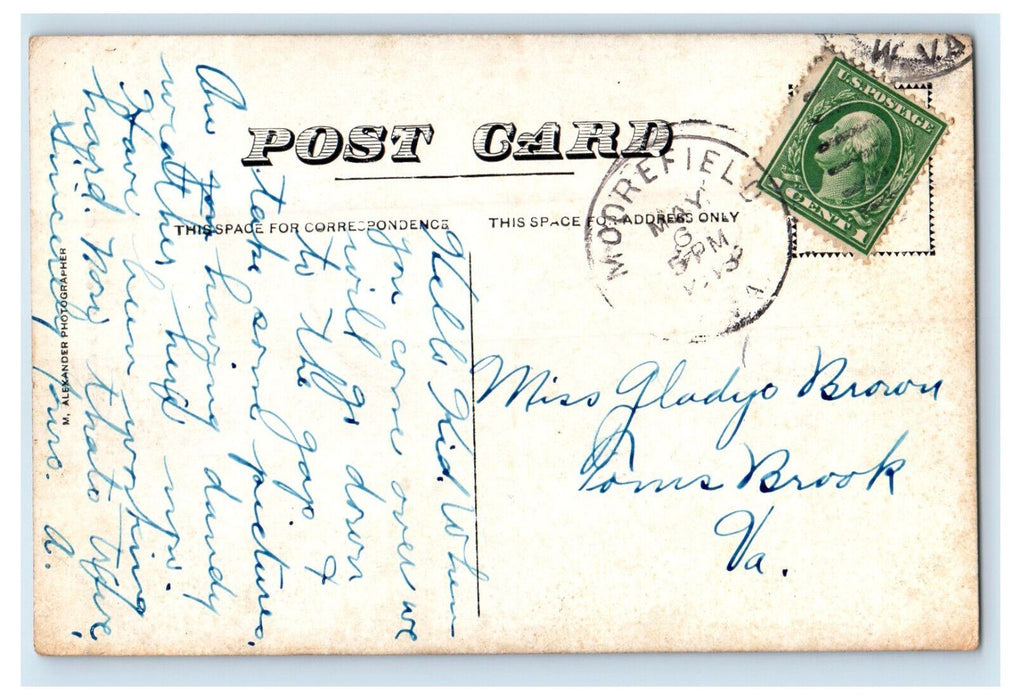 POST CARD
THIS SPACE FOR CORRESPONDENCE
THIS SPACE FOR ADDRESS ONLY
M. ALEXANDER PHOTOGRAPHER
W. VA
U.S. POSTAGE
1 CENT 1
MOOREFIELD
MAY
6
5 PM
Miss Gladys Brown
Toms Brook
Va.
Hello Kid. When
you come over we
will go down
to the gaps &
take some pictures.
Are you having dandy
weather here now.
Have been working
hard. Now thats
Sincerely yours. A.